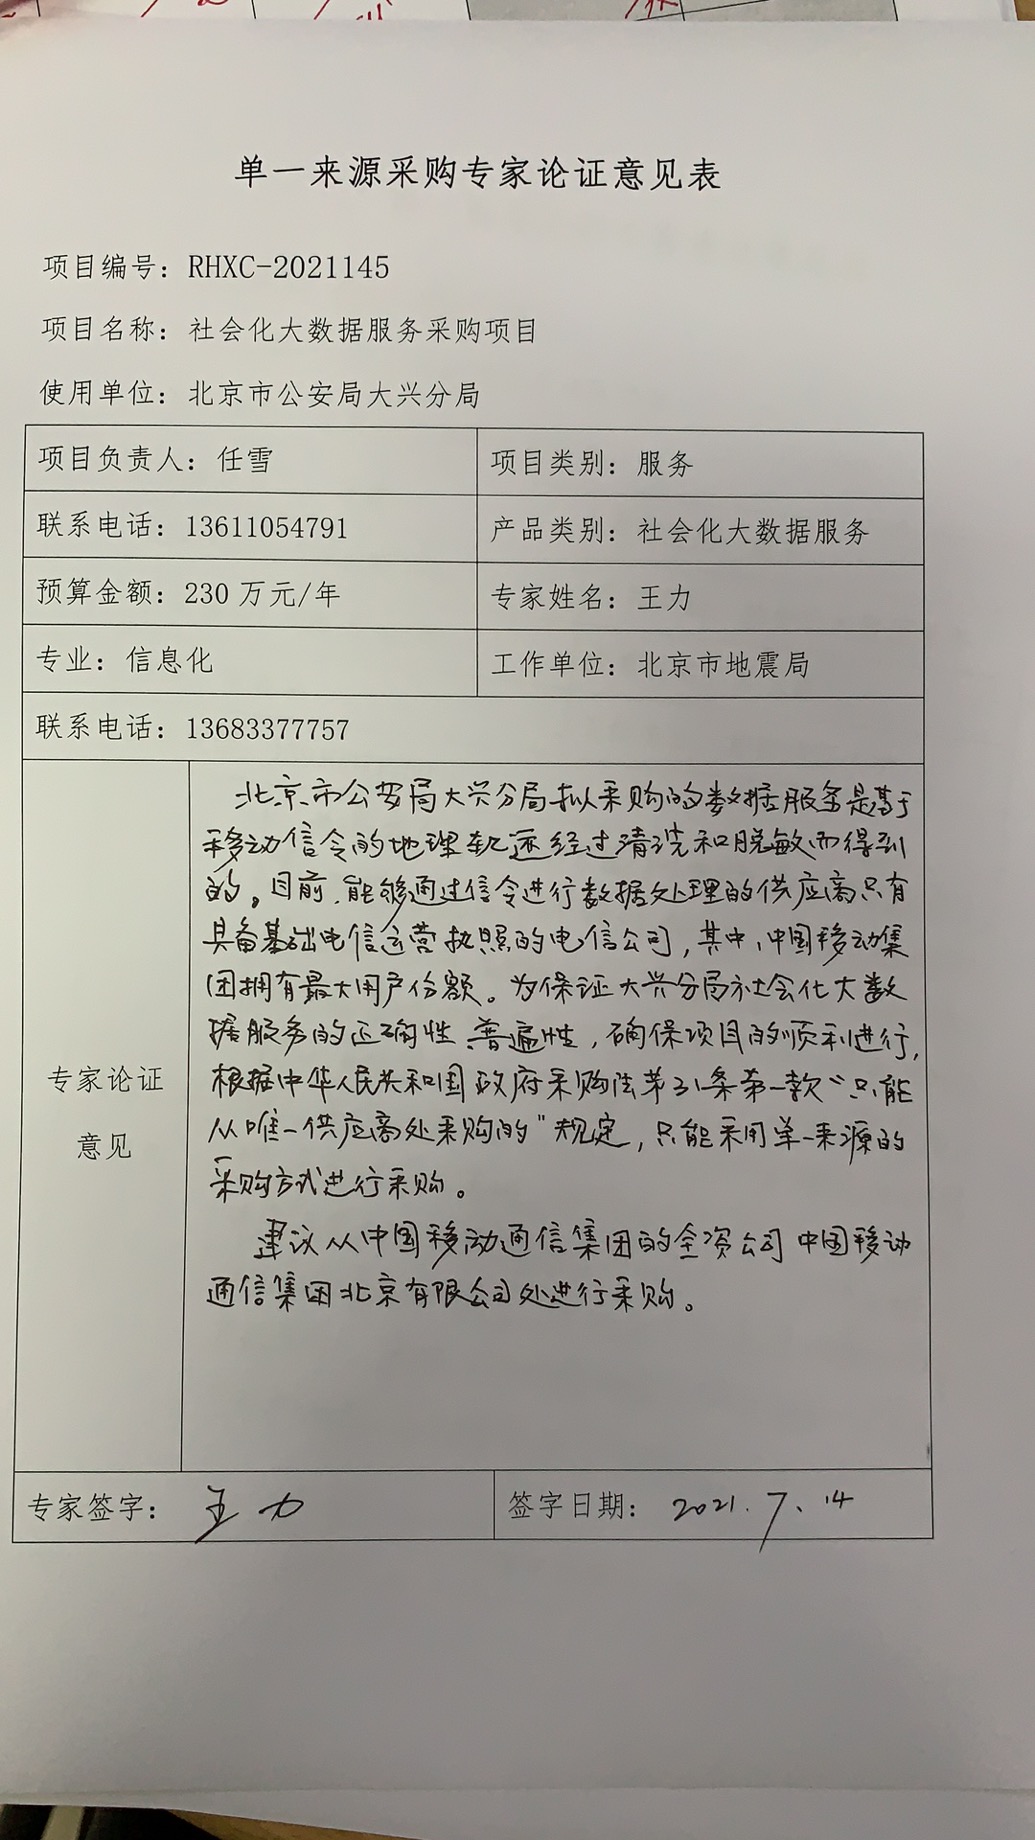 单一来源采购专家论证意见表
项目编号：RHXC-2021145
项目名称：社会化大数据服务采购项目
使用单位：北京市公安局大兴分局
项目负责人：任雪
项目类别：服务
联系电话：13611054791
产品类别：社会化大数据服务
预算金额：230万元/年
专家姓名：王力
专业：信息化
工作单位：北京市地震局
联系电话：13683377757
专家论证
意见
北京市公安局大兴分局拟采购的数据服务是基于
移动信令的地理轨迹经过清洗和脱敏而得到
的。目前，能够通过信令进行数据处理的供应商只有
具备基础电信运营执照的电信公司，其中，中国移动集
团拥有最大用户份额。为保证大兴分局社会化大数
据服务的正确性、普遍性，确保项目的顺利进行，
根据中华人民共和国政府采购法第31条第一款“只能
从唯一供应商处采购的”规定，只能采用单一来源的
采购方式进行采购。
建议从中国移动通信集团的全资公司中国移动
通信集团北京有限公司处进行采购。
专家签字：王力
签字日期：2021.7.14